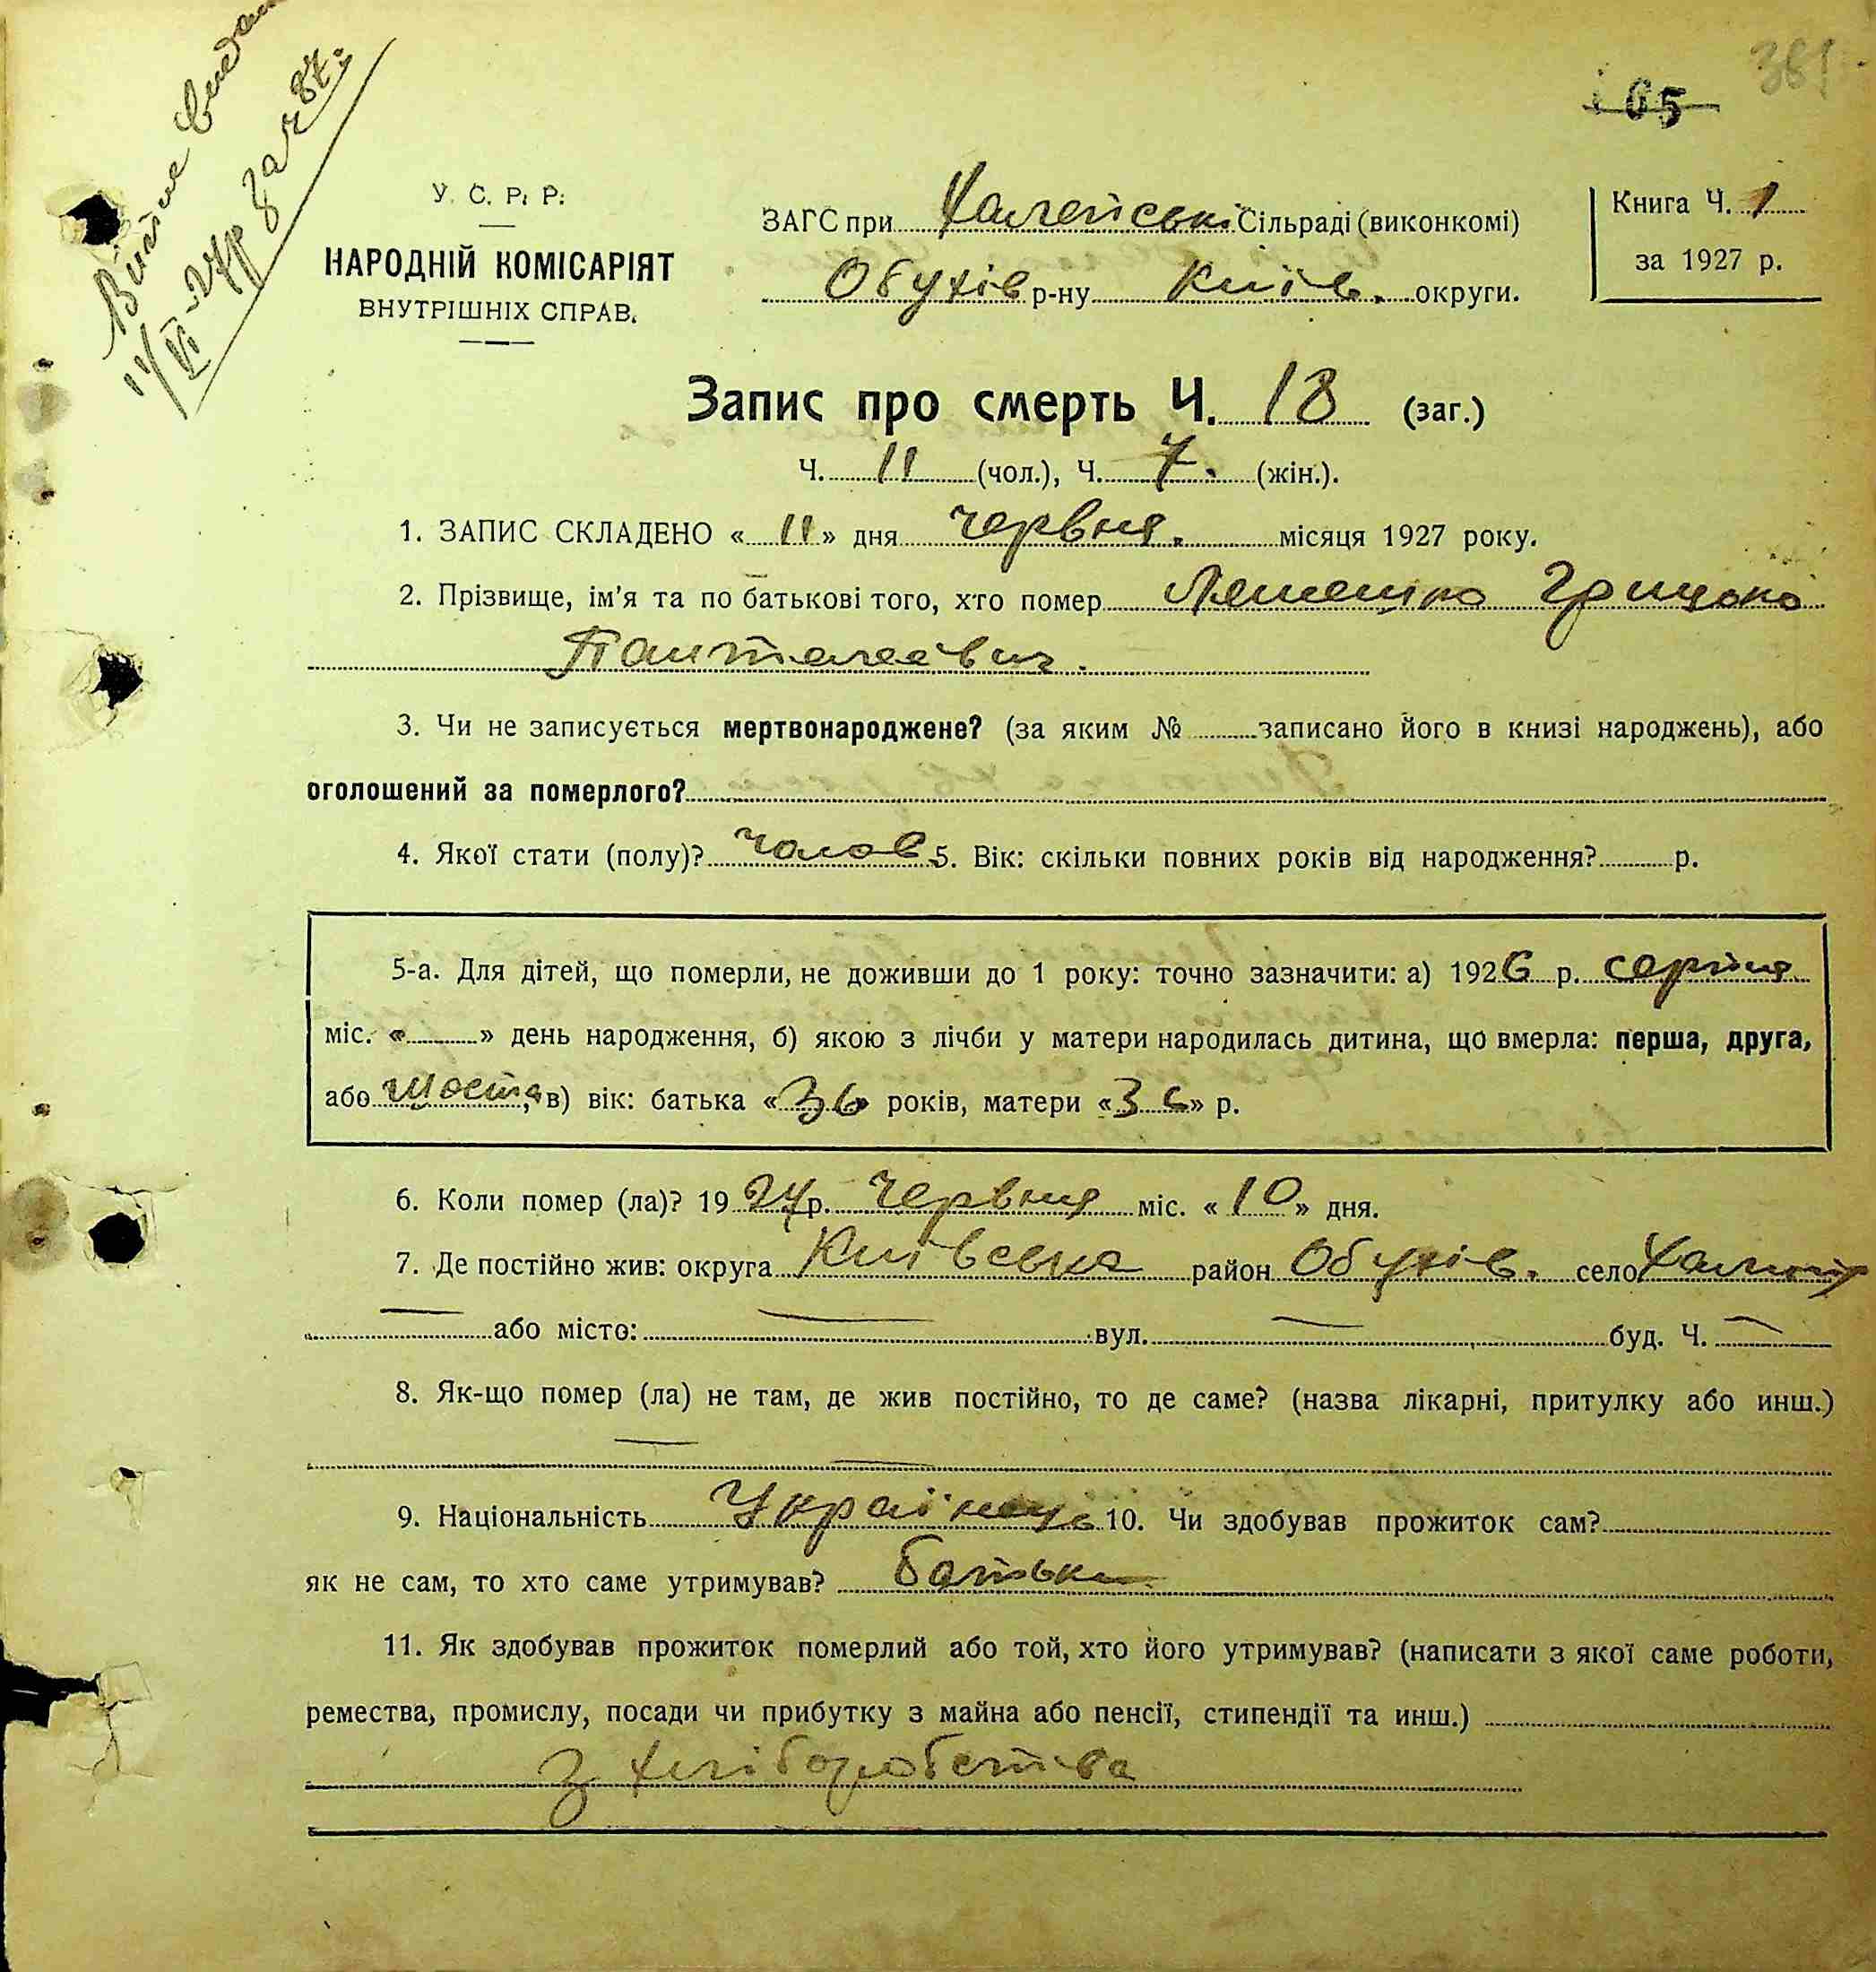 Витяг видан
11/VI-27р за ч 87.
165
381
У. С. Р. Р.
НАРОДНІЙ КОМІСАРІЯТ
ВНУТРІШНІХ СПРАВ.
ЗАГС при Халепські Сільраді (виконкомі)
Обухів р-ну Київ. округи.
Книга Ч. 1
за 1927 р.
Запис про смерть Ч. 18 (заг.)
Ч. 11 (чол.), Ч. 7. (жін.).
1. ЗАПИС СКЛАДЕНО « 11 » дня червня. місяця 1927 року.
2. Прізвище, ім'я та по батькові того, хто помер Грицько
Панталеєвич.
3. Чи не записується мертвонароджене? (за яким № записано його в книзі народжень), або
оголошений за померлого?
4. Якої стати (полу)? чолов 5. Вік: скільки повних років від народження? р.
5-а. Для дітей, що померли, не доживши до 1 року: точно зазначити: а) 1926 р. серпня
міс. « » день народження, б) якою з лічби у матери народилась дитина, що вмерла: перша, друга,
або шоста, в) вік: батька «36» років, матери «36» р.
6. Коли помер (ла)? 1927 р. червня міс. « 10 » дня.
7. Де постійно жив: округа Київська район Обухів. село
або місто: — вул. — буд. Ч. —
8. Як-що помер (ла) не там, де жив постійно, то де саме? (назва лікарні, притулку або инш.)
9. Національність Українець 10. Чи здобував прожиток сам?
як не сам, то хто саме утримував? батьки
11. Як здобував прожиток померлий або той, хто його утримував? (написати з якої саме роботи,
ремества, промислу, посади чи прибутку з майна або пенсії, стипендії та инш.)
з хліборобства